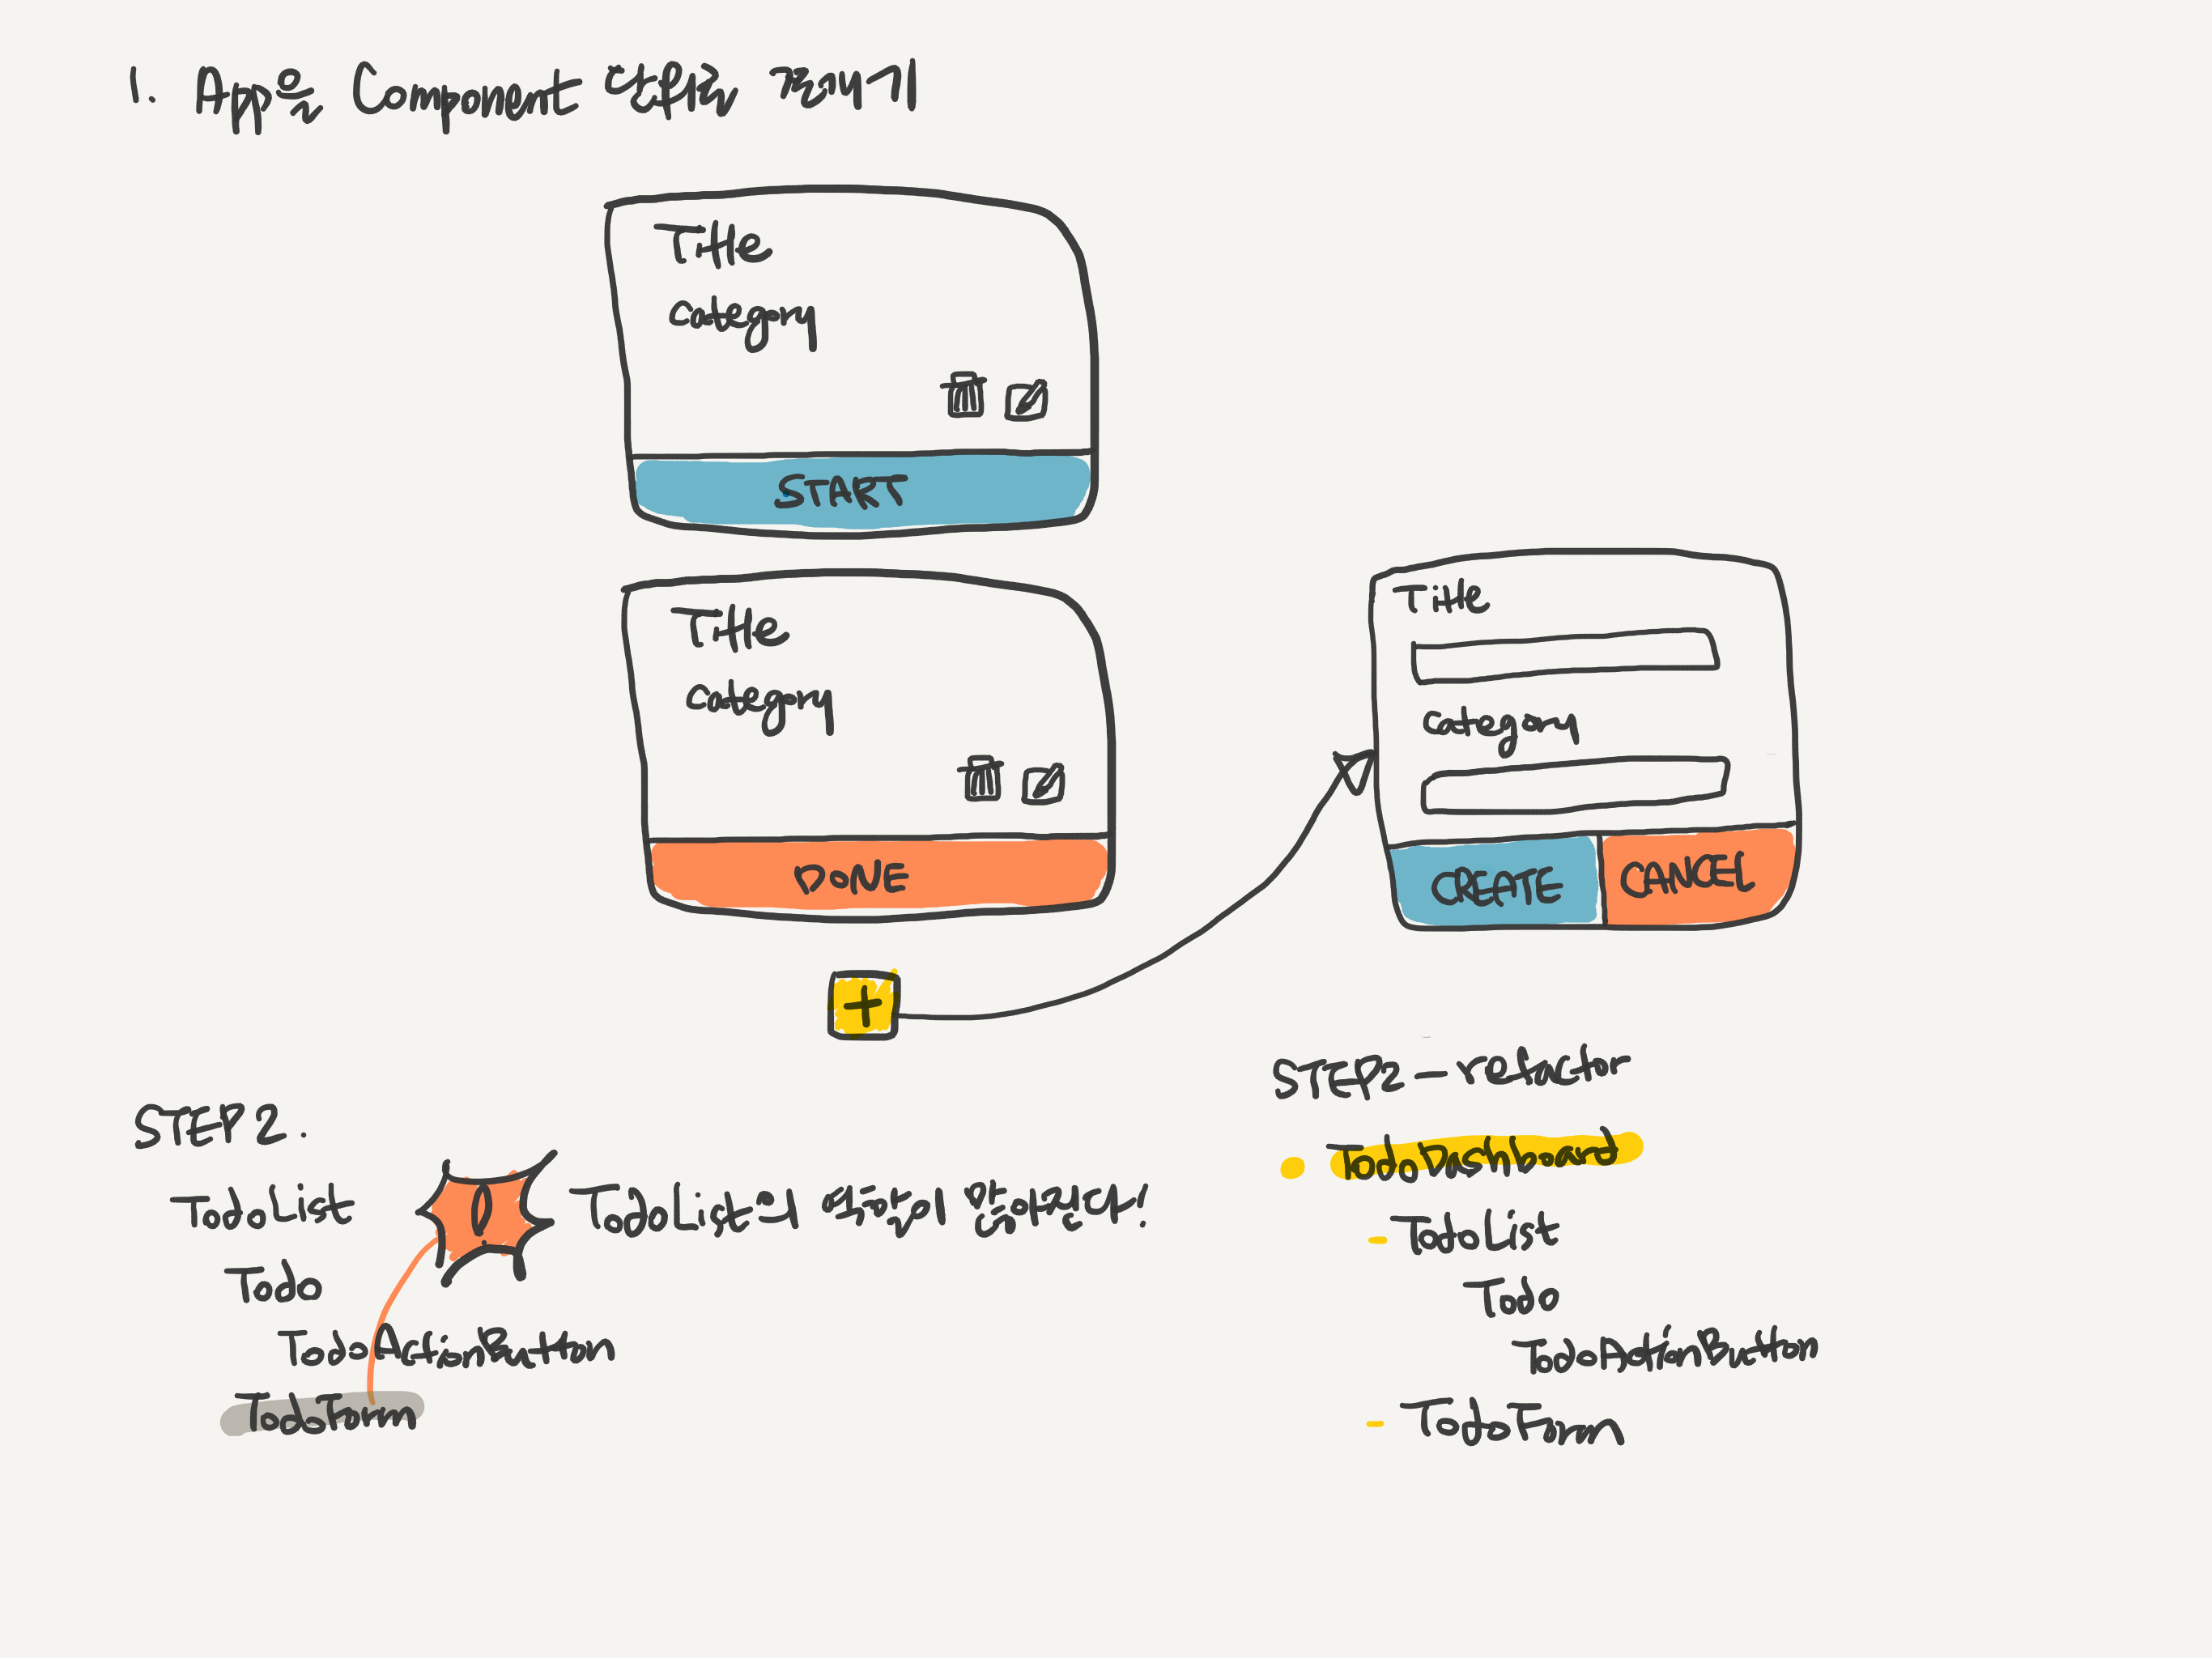 1. App을 Component 단위로 쪼개기
Title
category
START
Title
category
DONE
+
Title
category
CREATE
CANCEL
STEP 2.
TodoList
Todo
TodoActionButton
TodoForm
! TodoList의 성격이 얇아졌다!
STEP2 - refactor
TodoDashboard
- TodoList
Todo
TodoActionButton
- TodoForm